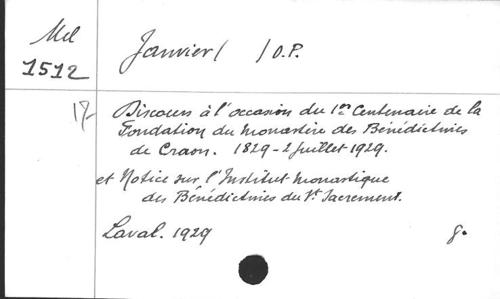 Mel
1512
Janvier/ /O.P.
17-
Discours à l'occasion du 1er Centenaire de la
Fondation du Monastère des Bénédictines
de Craon. 1829-2 Juillet 1929.
et Notice sur l'Institut Monastique
des Bénédictines du St Sacrement.
Laval. 1929
8.